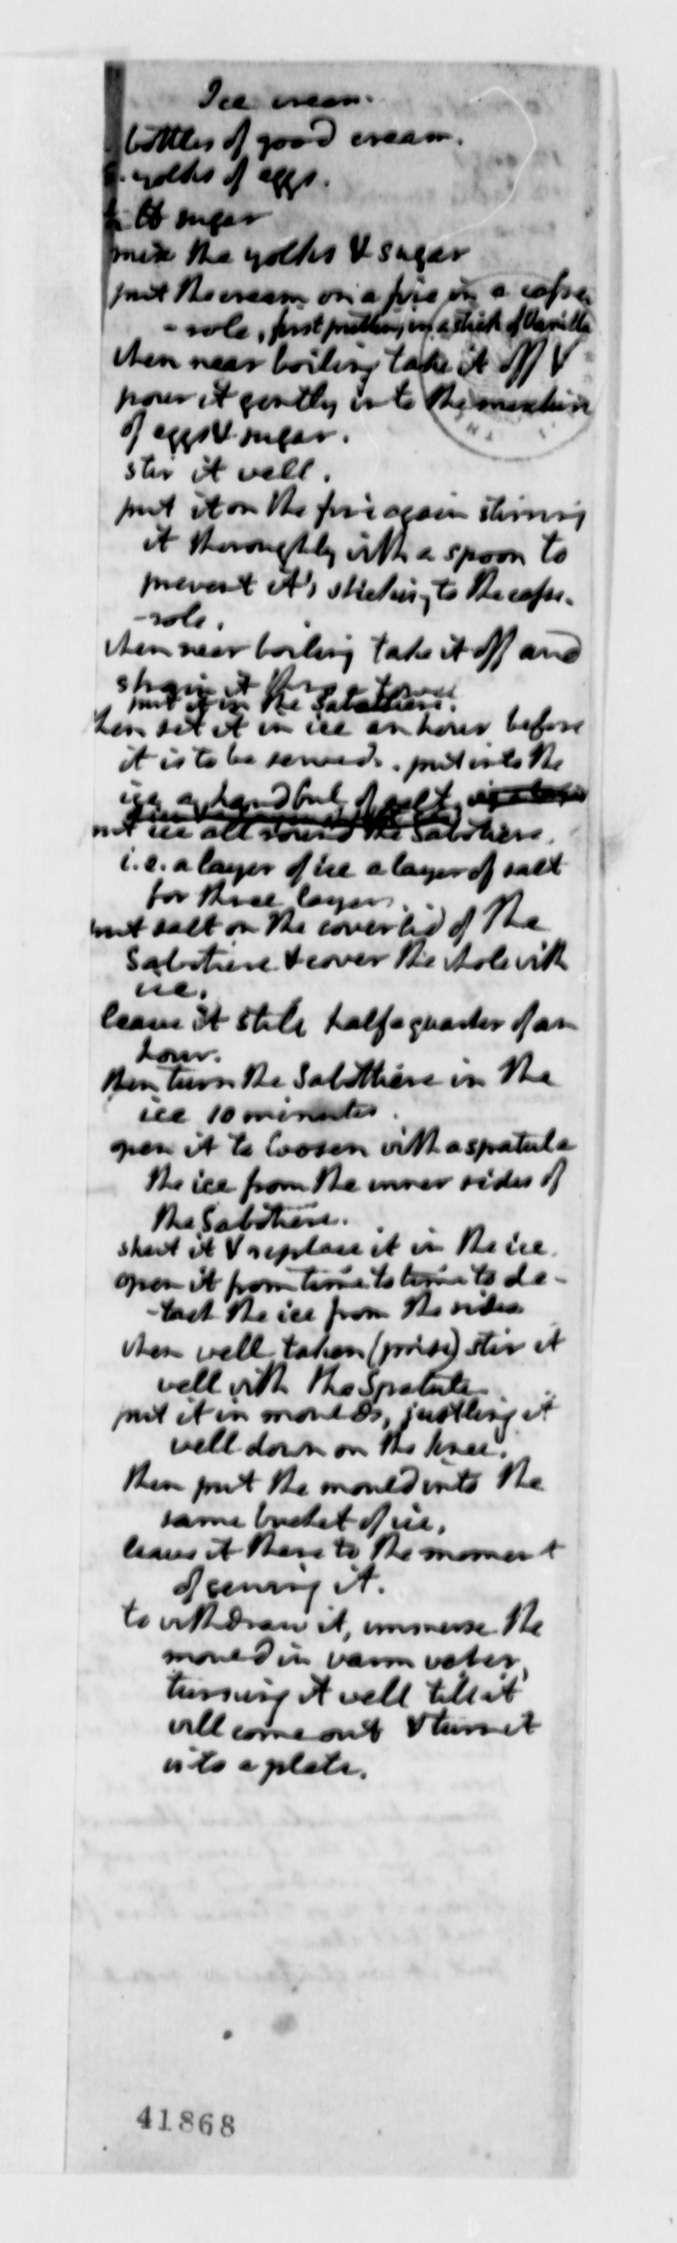 Ice cream.
bottles of good cream.
yolks of eggs.
℔ sugar
mix the yolks & sugar
put the cream on a fire in a casse-
-role, first putting in a stick of Vanilla
when near boiling take it off &
pour it gently into the mixture
of eggs & sugar.
stir it well.
put it on the fire again stirring
it thoroughly with a spoon to
prevent it's sticking to the casse-
-role.
when near boiling take it off and
strain it thro' a towel.
put it in the Sabottiere.
then set it in ice an hour before
it is to be served. put into the
ice a handful of salt.
put ice all round the Sabottiere.
i.e. a layer of ice a layer of salt
for three layers.
put salt on the coverlid of the
Sabotiere & cover the whole with
ice.
leave it still half a quarter of an
hour.
then turn the Sabottiere in the
ice 10 minutes.
open it to loosen with a spatula
the ice from the inner sides of
the Sabotiere.
shut it & replace it in the ice.
open it from time to time to de-
-tach the ice from the sides
when well taken (prise) stir it
well with the Spatula.
put it in moulds, justling it
well down on the knee.
then put the mould into the
same bucket of ice.
leave it there to the moment
of serving it.
to withdraw it, immerse the
mould in warm water,
turning it well till it
will come out & turn it
into a plate.
41868